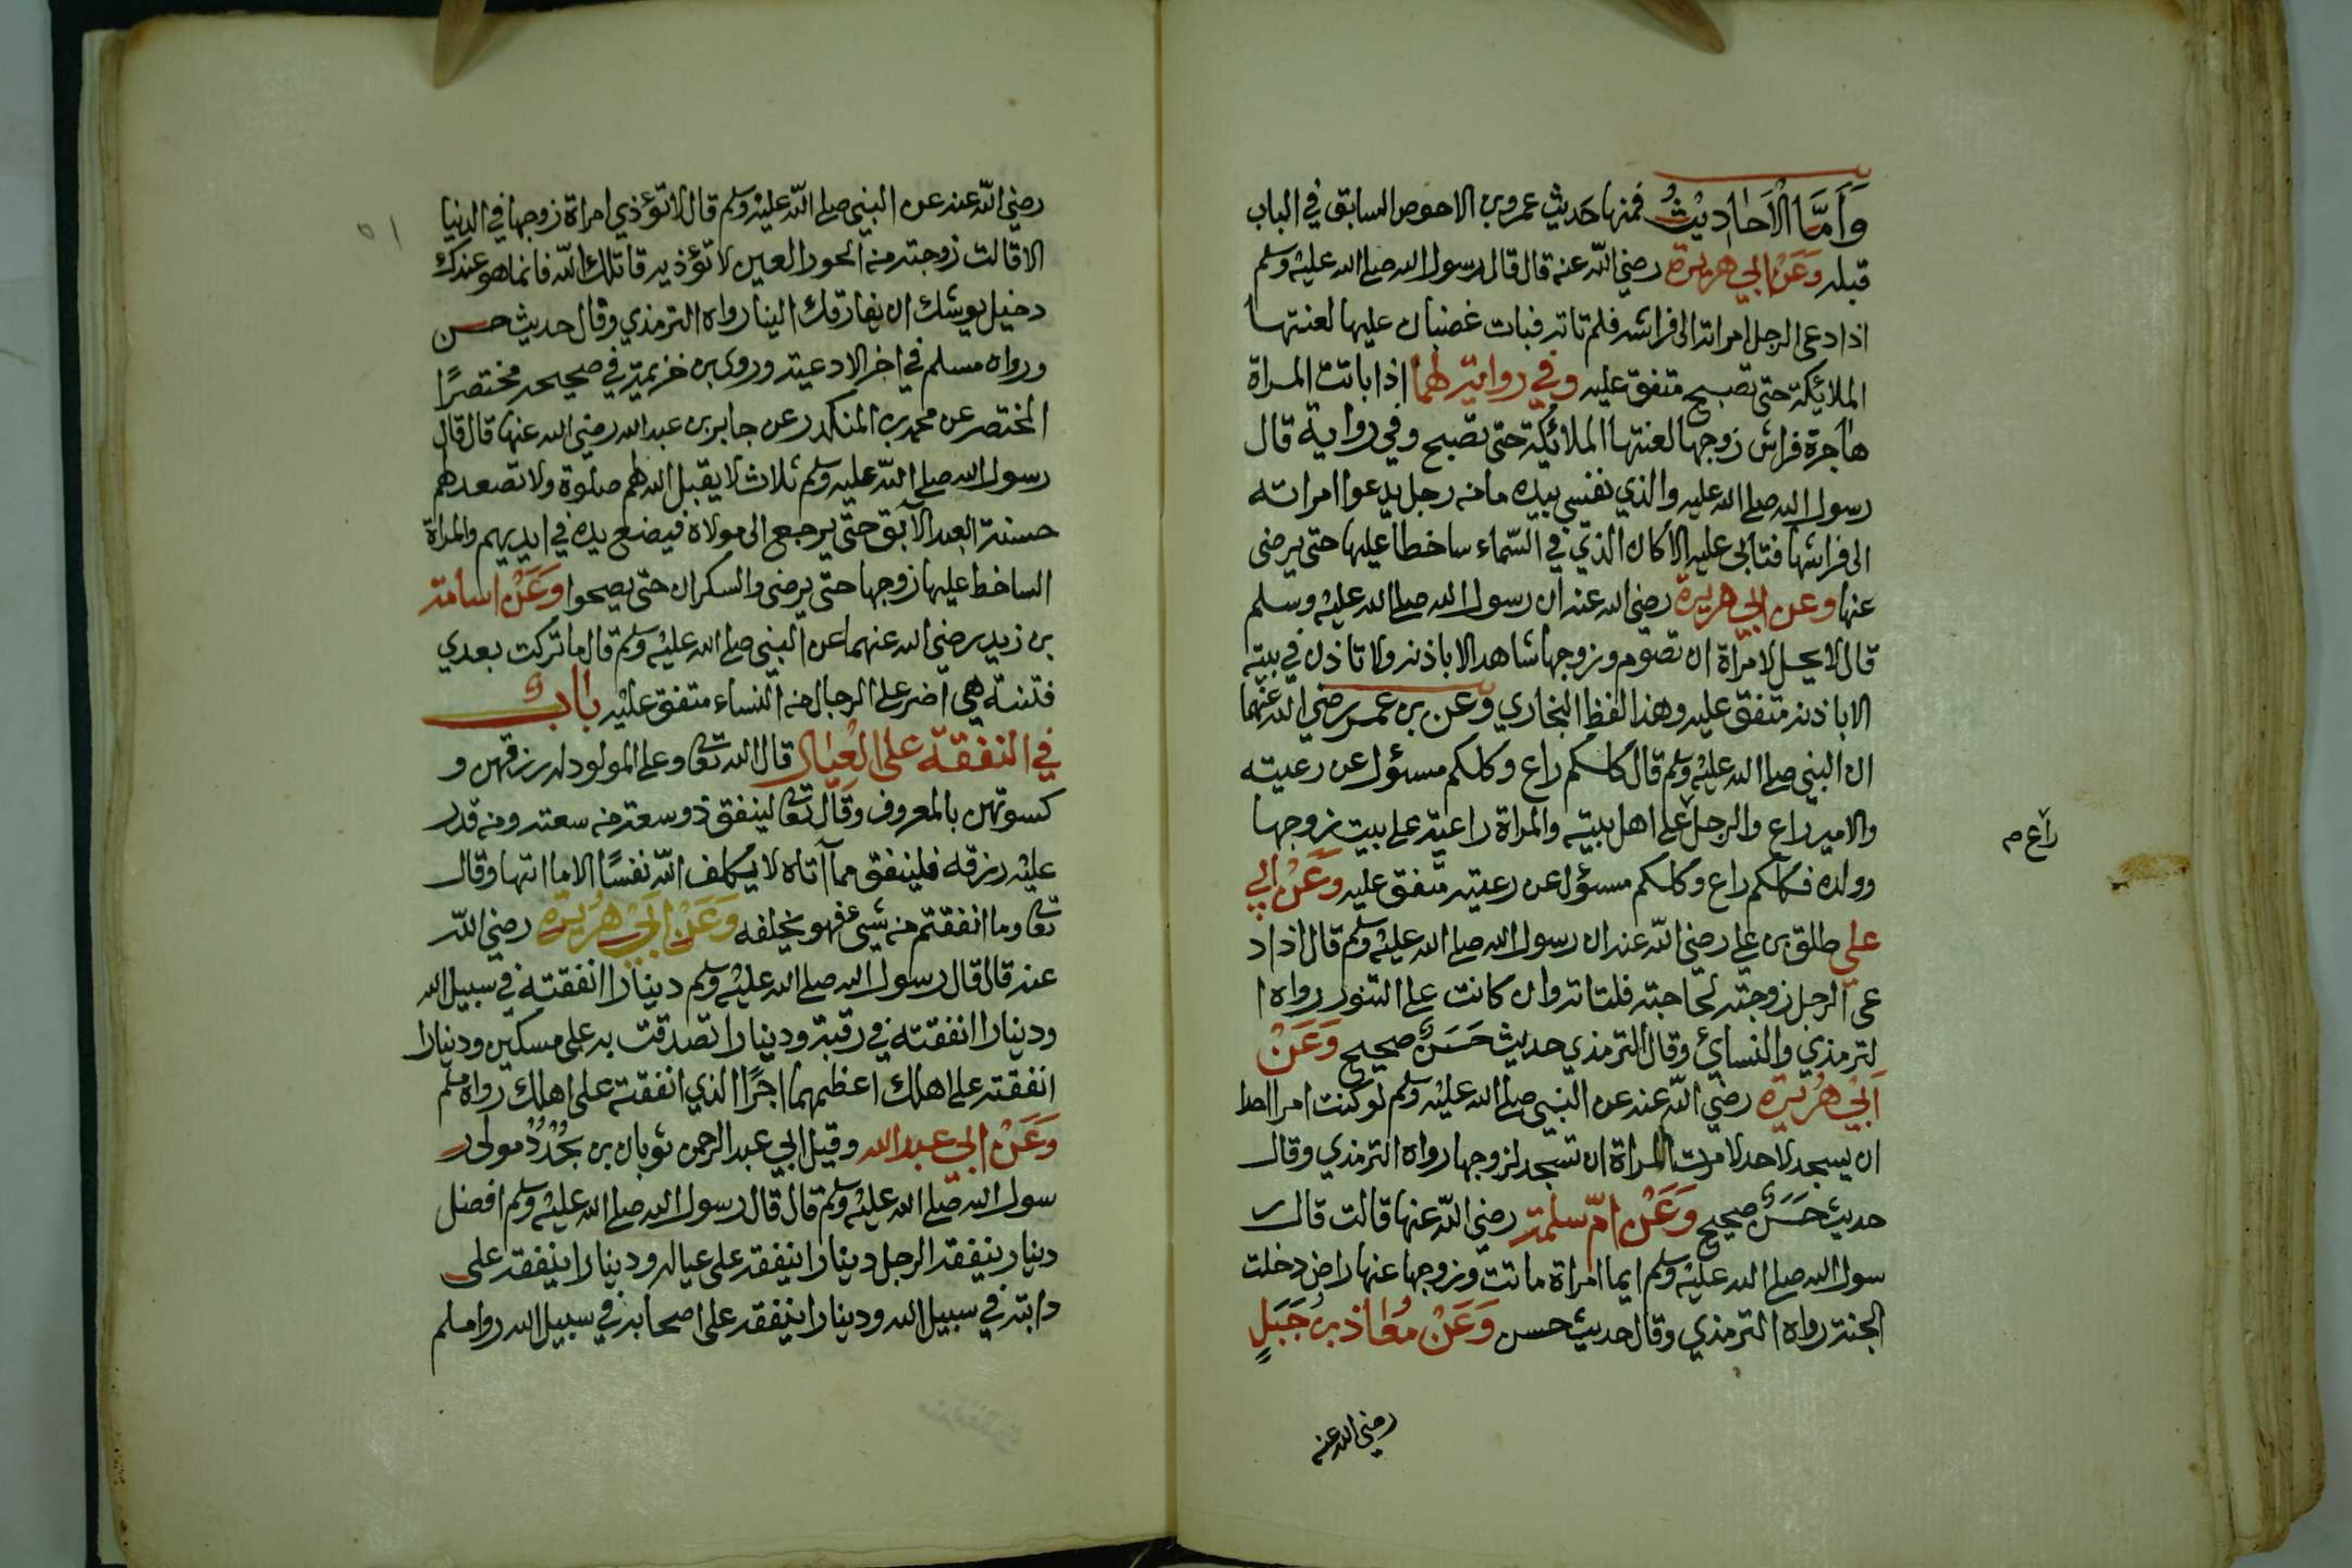 وَأَمَّا الْاَحَادِيْثُ فمنها حديث عمرو بن الاحوص السابق في الباب
قبله وَعَنْ ابي هريرة رضي الله عنه قال قال رسول الله صلى الله عليه وسلم
اذا دعى الرجل امراته الى فراشه فلم تاته فبات غضبان عليها لعنتها
الملائكة حتى تصبح متفق عليه وفي رواية لهما اذا باتت المراة
هاجرة فراش زوجها لعنتها الملائكة حتى تصبح وفي رواية قال
رسول الله صلى الله عليه والذي نفسي بيده ما من رجل يدعوا امراته
الى فراشها فتابى عليه الا كان الذي في السماء ساخطا عليها حتى يرضى
عنها وعن ابي هريرة رضي الله عنه ان رسول الله صلى الله عليه وسلم
قال لا يحل لامراة ان تصوم وزوجها شاهد الا باذنه ولا تاذن في بيته
الا باذنه متفق عليه وهذا لفظ البخاري وعن بن عمر رضي الله عنهما
ان النبي صلى الله عليه وسلم قال كلكم راع وكلكم مسئول عن رعيته
والامير راع والرجل على اهل بيته والمراة راعية على بيت زوجها
راع صح
وولده فكلكم راع وكلكم مسئول عن رعيته متفق عليه وَعَنْ ابي
علي طلق بن علي رضي الله عنه ان رسول الله صلى الله عليه وسلم قال اذا د
عى الرجل زوجته لحاجته فلتاته وان كانت على التنور رواه ا
لترمذي والنسائ وقال الترمذي حديث حَسَنٌ صحيح وَعَنْ
اَبِيْ هُرَيْرَة رضي الله عنه عن النبي صلى الله عليه وسلم لو كنت امرا احدا
ان يسجد لاحد لامرت المراة ان تسجد لزوجها رواه الترمذي وقال
حديث حَسَنٌ صحيح وَعَنْ امّ سلمة رضي الله عنها قالت قال ر
سول الله صلى الله عليه وسلم ايما امراة ماتت وزوجها عنها راض دخلت
الجنة رواه الترمذي وقال حديث حسن وَعَنْ مُعَاذ بن جَبَلٍ
رضي الله عنه
٥١
رضي الله عنه عن النبي صلى الله عليه وسلم قال لا تؤذي امراة زوجها في الدنيا
الا قالت زوجته من الحور العين لا تؤذيه قاتلك الله فانما هو عندك
دخيل يوشك ان يفارقك الينا رواه الترمذي وقال حديث حسن
ورواه مسلم في اخر الادعية وروى بن خزيمة في صحيحه مختصرًا
المختصر عن محمد بن المنكدر عن جابر بن عبد الله رضي الله عنها قال قال
رسول الله صلى الله عليه وسلم ثلاث لا يقبل الله لهم صلوة ولا تصعد لهم
حسنة العبد الآبق حتى يرجع الى مولاه فيضع يده في ايديهم والمراة
الساخط عليها زوجها حتى يرضى والسكران حتى يصحوا وَعَنْ اسامة
بن زيد رضي الله عنهما عن النبي صلى الله عليه وسلم قال ما تركت بعدي
فتنة هي اضر على الرجال من النساء متفق عليه باب
في النفقة على العيال قال الله تعا وعلى المولود له رزقهن و
كسوتهن بالمعروف وقال تعا لينفق ذو سعة من سعته ومن قدر
عليه رزقه فلينفق مما آتاه لا يكلف الله نفسًا الا ما اتها وقال
تعا وما انفقتم من شيئ فهو يخلفه وَعَنْ اَبِيْ هُرَيْرَة رضي الله
عنه قال قال رسول الله صلى الله عليه وسلم دينارا انفقته في سبيل الله
ودينارا انفقته في رقبة ودينارا تصدقت به على مسكين ودينارا
انفقته على اهلك اعظمهما اجرًا الذي انفقته على اهلك رواه مسلم
وَعَنْ ابي عبد الله وقيل ابي عبد الرحمن ثوبان بن بجُدُد مولى ر
سول الله صلى الله عليه وسلم قال قال رسول الله صلى الله عليه وسلم افضل
دينار ينفقه الرجل دينارا ينفقه على عياله ودينارا ينفقه على
دابته في سبيل الله ودينارا ينفقه على اصحابه في سبيل الله روا مسلم